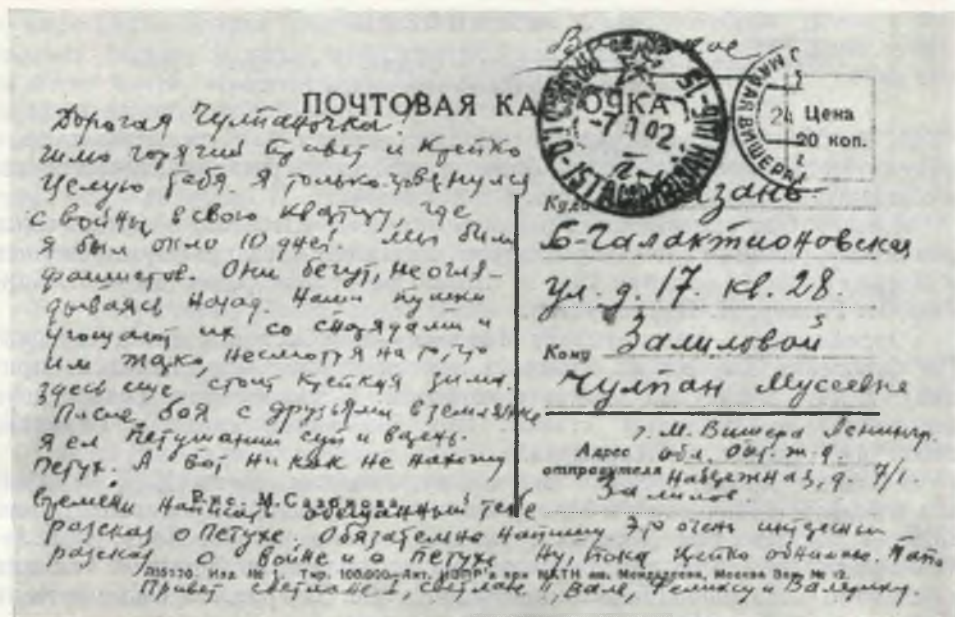 Воинское
ПОЧТОВАЯ КАРТОЧКА
Цена
20 коп.
Дорогая Чулпаночка!
Шлю горячий привет и крепко
целую тебя. Я только что вернулся
с войны, в свою квартиру, где
я был около 10 дней. Мы били
фашистов. Они бегут, не огля-
дываясь назад. Наши пушки
угощают их со снарядами и
им жарко, несмотря на то, что
здесь еще стоит крепкая зима.
После боя с друзьями в землянке
я ел петушиный суп и
Петух. А вот никак не нахожу
времени написать обещанный тебе
разсказ о Петухе. Обязательно напишу. Это очень интересный
разсказ о войне и о петухе. Ну, пока крепко обнимаю. Папа
Привет Светлане I, Светлане II, Вале, Феликсу и Валерику.
Рис. М. Сазонова
МАЛАЯ ВИШЕРА
24
Куда Казань
Б-Галактионовская
ул. д. 17. кв. 28.
Кому Залиловой
Чулпан Мусеевне
Адрес
отправителя
г. М. Вишера Ленингр.
обл. Окт. ж. д.
Набережная, д. 7/1.
Залилов.